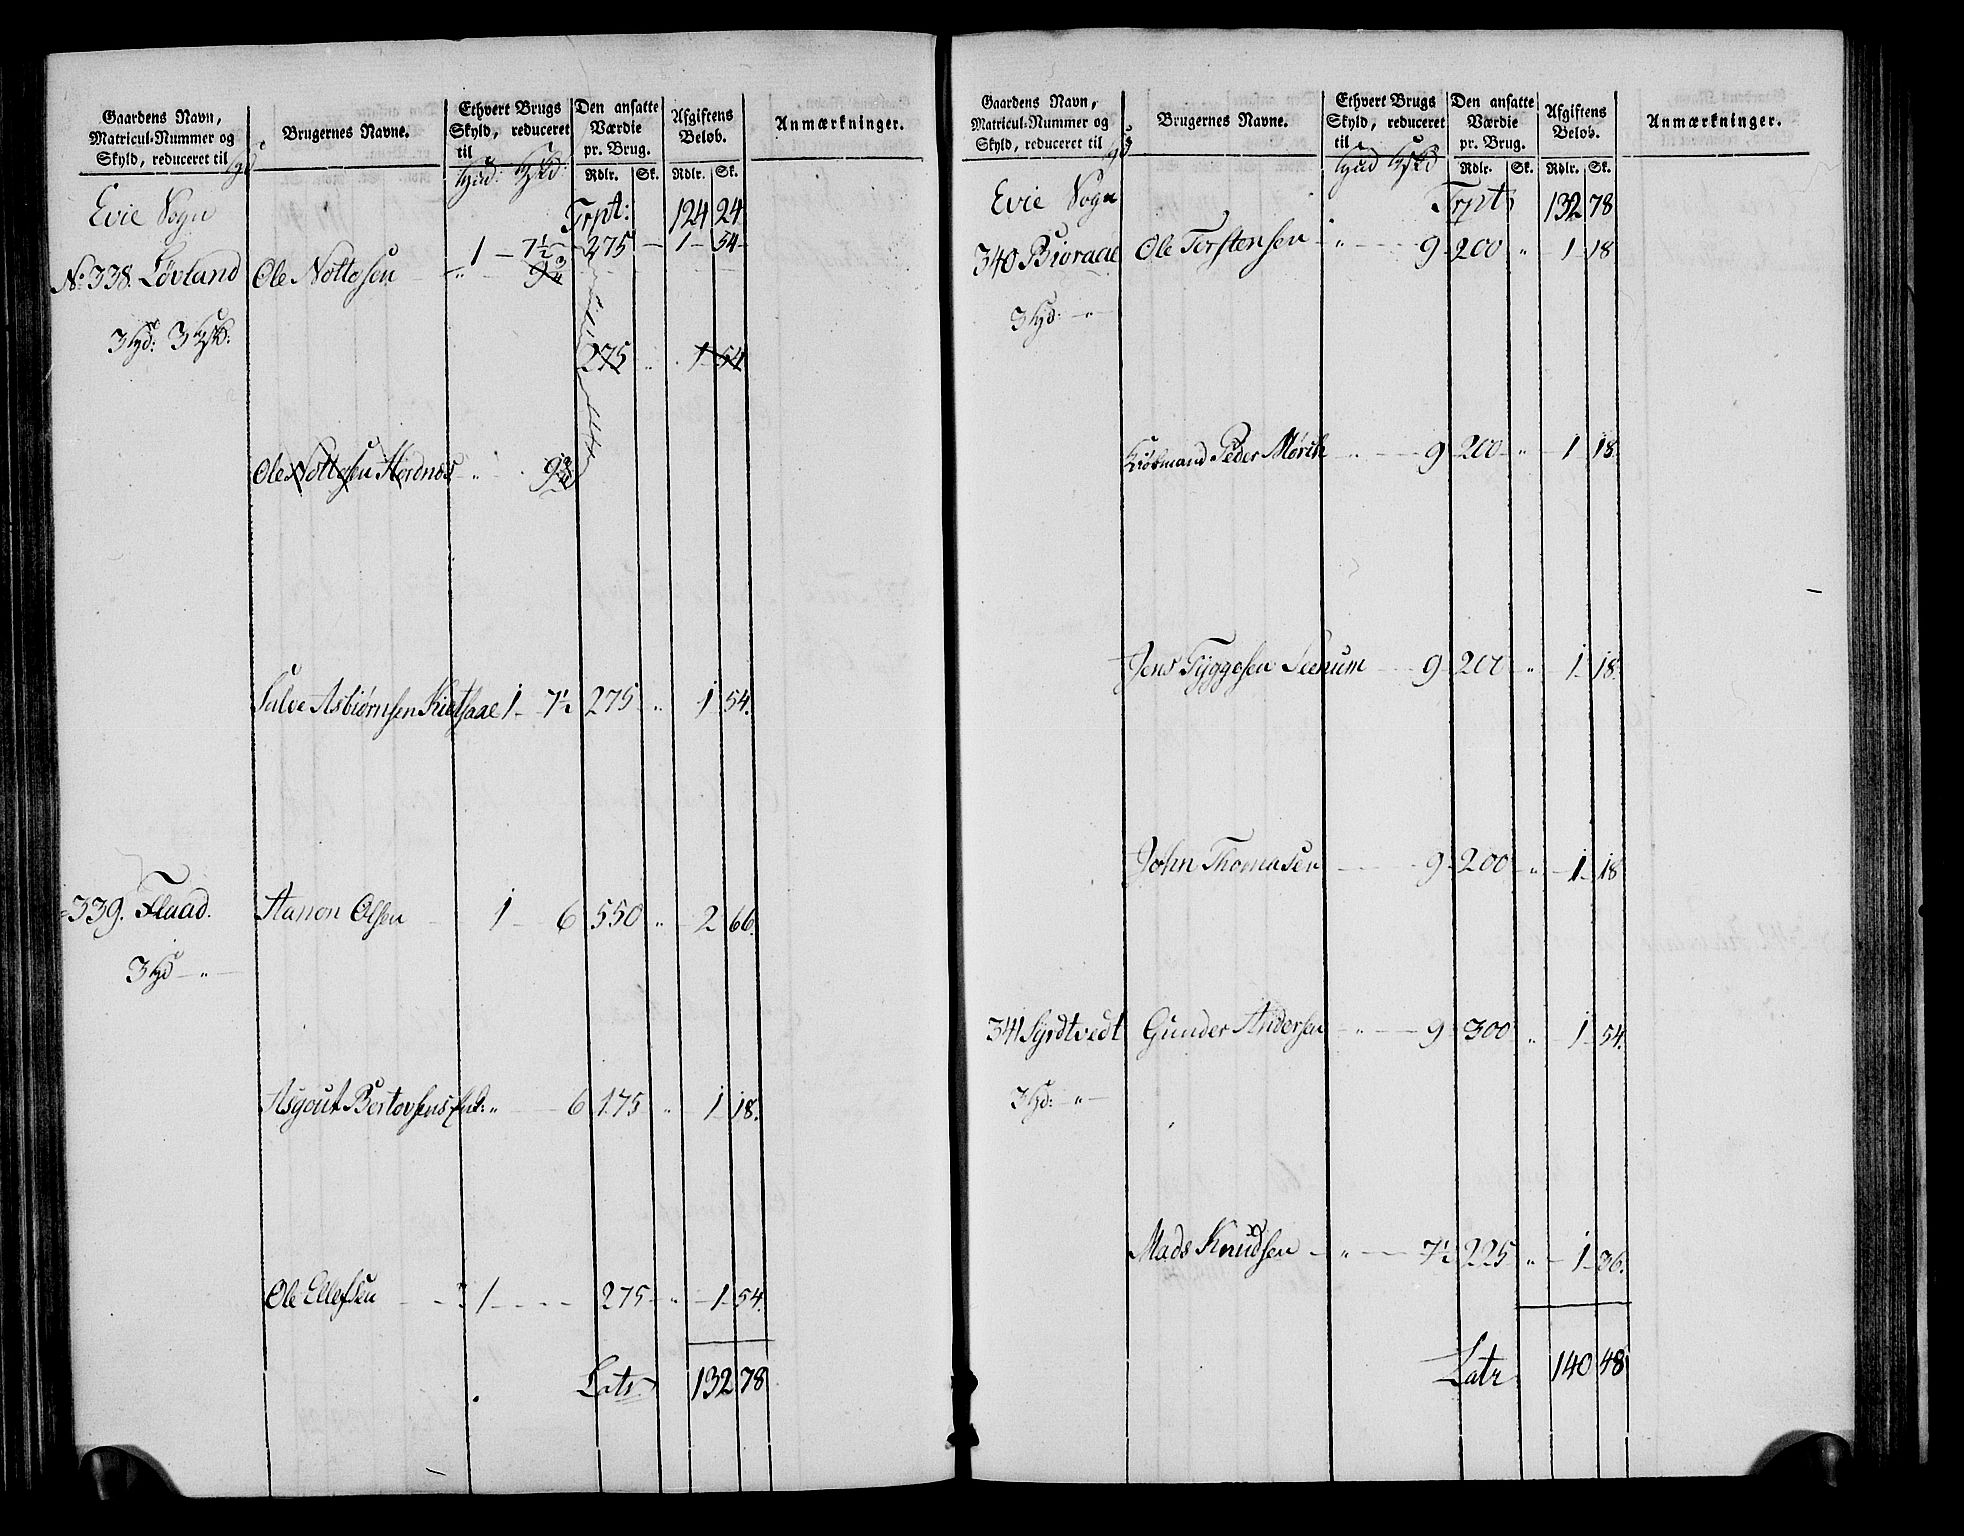 Gaardens Navn,
Matricul-Nummer og
Skyld, reduceret til
Brugernes Navne.
Ethvert Brugs
Skyld, reduceret
til
Hud: Skd:
Den ansatte
Værdie
pr. Brug.
Rdlr. Sk.
Afgiftens
Beløb.
Rdlr. Sk.
Anmærkninger.
Evie Sogn Trpt: 124 24
1 - 7½ 275 - 1 - 54
No 338. Løvland Ole Nottosen
3 Hd: 3
275 " 1 54
Ole Nottosen Hordnes "
Salve Asbiørnsen Kietsaae 1 - 7½ 275 " 1 54.
339. Flaad. Aanon Olsen 1 - 6 550 " 2 66.
3 Hd - "
Asgout Bertovsens 6 175 " 1 18.
Ole Ellefsen 1 275 " 1 54.
Latr 132 78
Gaardens Navn,
Matricul-Nummer og
Skyld, reduceret til
Brugernes Navne.
Ethvert Brugs
Skyld, reduceret
til
Hud Skd
Den ansatte
Værdie
pr. Brug.
Rdlr. Sk.
Afgiftens
Beløb.
Rdlr. Sk.
Anmærkninger.
Evie Sogn Trpt 132 78
340 Bioraae Ole Torstensen " 9 200 " 1 18
3 Hd: "
Kiøbmand Peder Mørch " 9 200 " 1 18
Jens Tyggesen Seenum 9 200 " 1 18.
John Thomasen 9 200 " 1 18
341 Syrdtvedt Gunder Andersen " 9 300 " 1 54.
3 Hd: "
Mads Knudsen " 7½ 225 " 1 36.
Latr 140 48